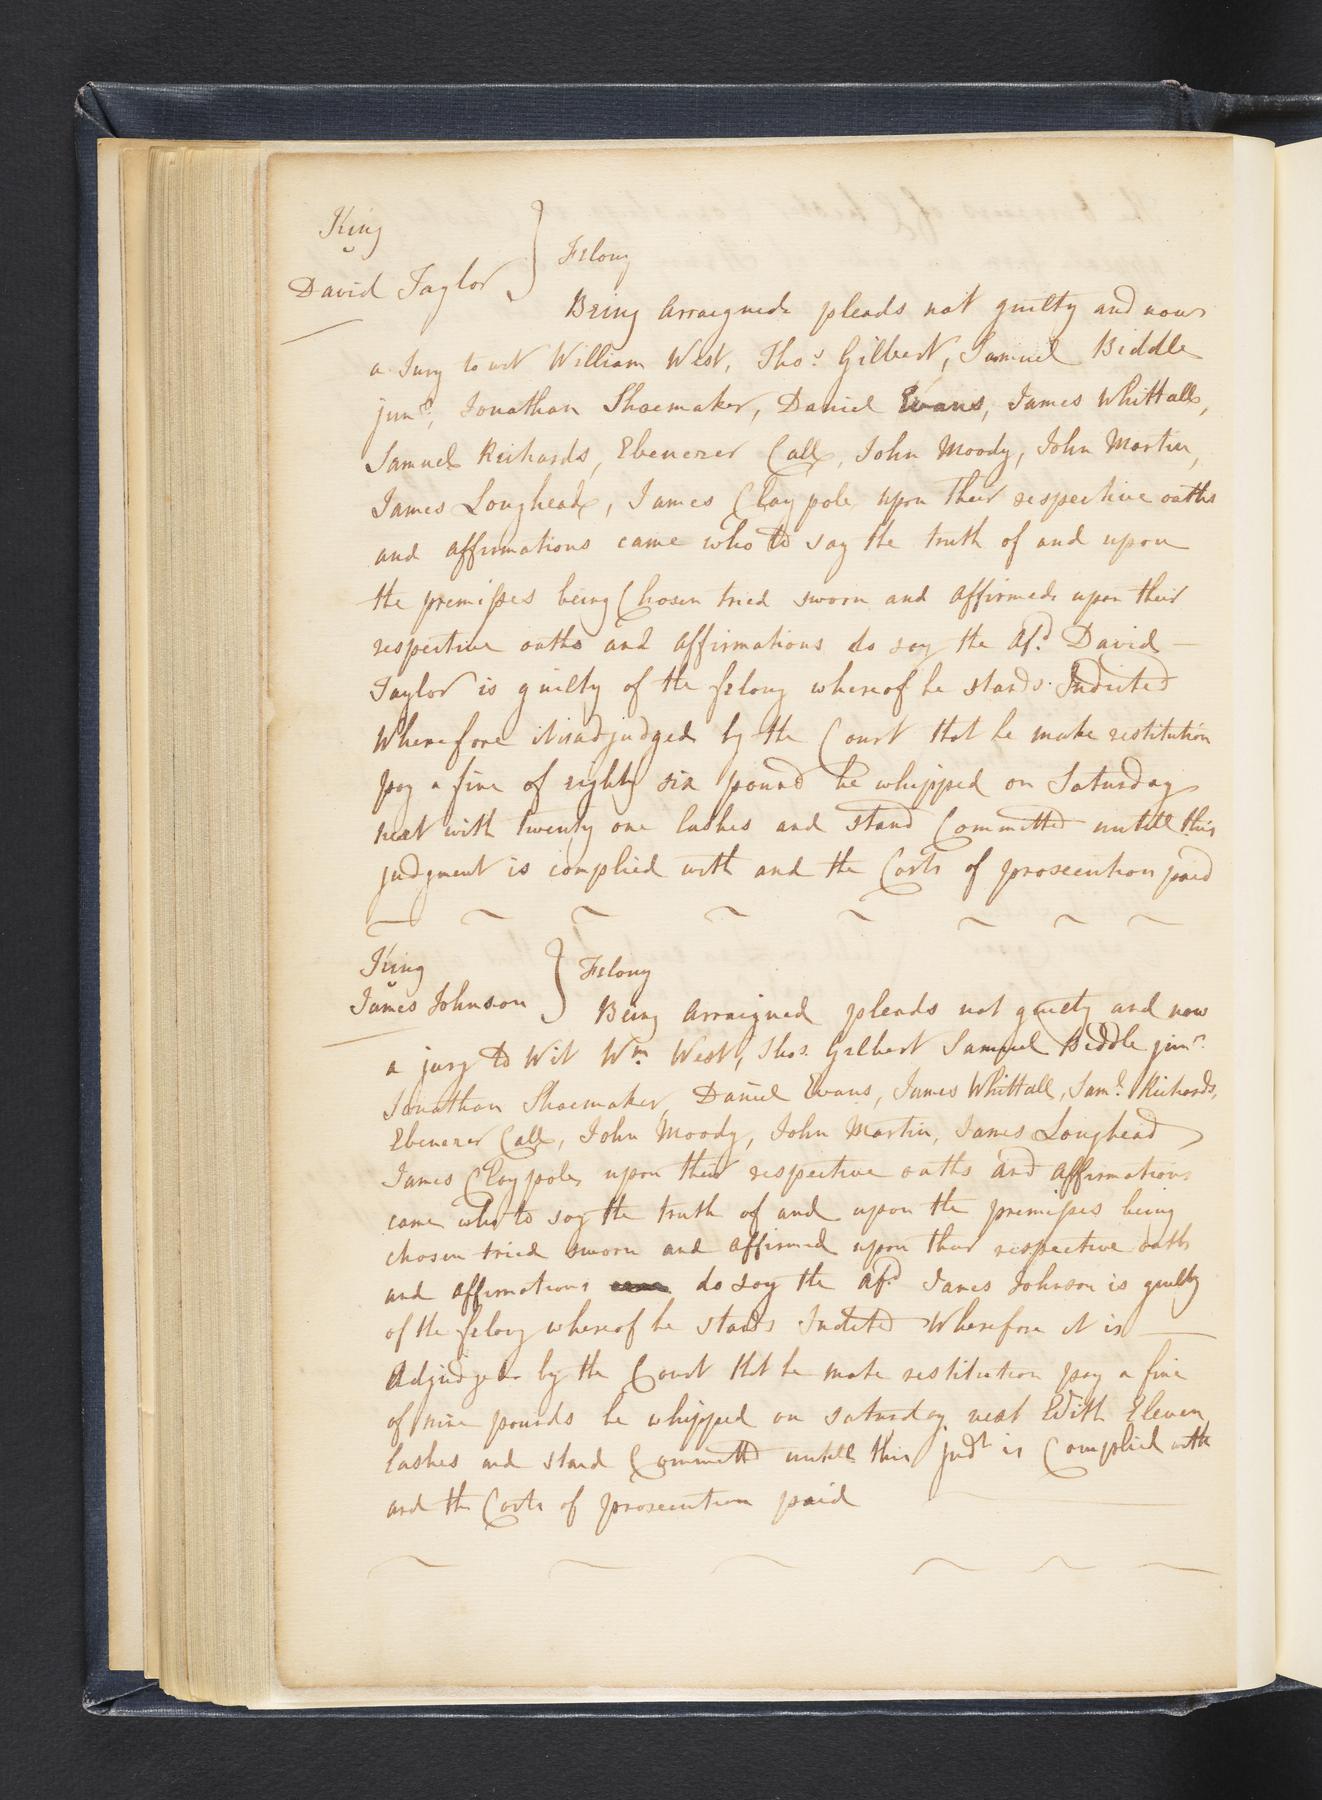 King
v
David Taylor
Felony
Being Arraigned pleads not guilty and now
a Jury to wit William West, Thos. Gilbert, Samuel Biddle
junr., Jonathan Shoemaker, Daniel Evans, James Whittall,
Samuel Richards, Ebenezer Call, John Moody, John Martin,
James Loughead, James Claypole upon their respective oaths
and affirmations came who to say the truth of and upon
the premisses being Chosen tried sworn and affirmed upon their
respective oaths and affirmations do say the Afd. David —
Taylor is guilty of the felony whereof he stands Indicted
Wherefore it is adjudged by the Court that he make restitution
pay a fine of eighty six pound be whipped on Saturday
next with twenty one lashes and stand Committed untill this
judgment is complied with and the Costs of prosecution paid
King
v
James Johnson
Felony
Being Arraigned pleads not guilty and now
a jury to Wit Wm. West, Thos. Gilbert Samuel Biddle junr.
Jonathan Shoemaker, Daniel Evans, James Whittall, Saml. Richards,
Ebenezer Call, John Moody, John Martin, James Loughead
James Claypole, upon their respective oaths and affirmations
came who to say the truth of and upon the premisses being
chosen tried sworn and affirmed upon their respective oaths
and affirmations do say the Afd. James Johnson is guilty
of the felony whereof he stands Indicted Wherefore it is —
Adjudged by the Court that he make restitution pay a fine
of nine pounds be whipped on saturday next With Eleven
lashes and stand Committed untill this Judt is Complied with
and the Costs of prosecution paid